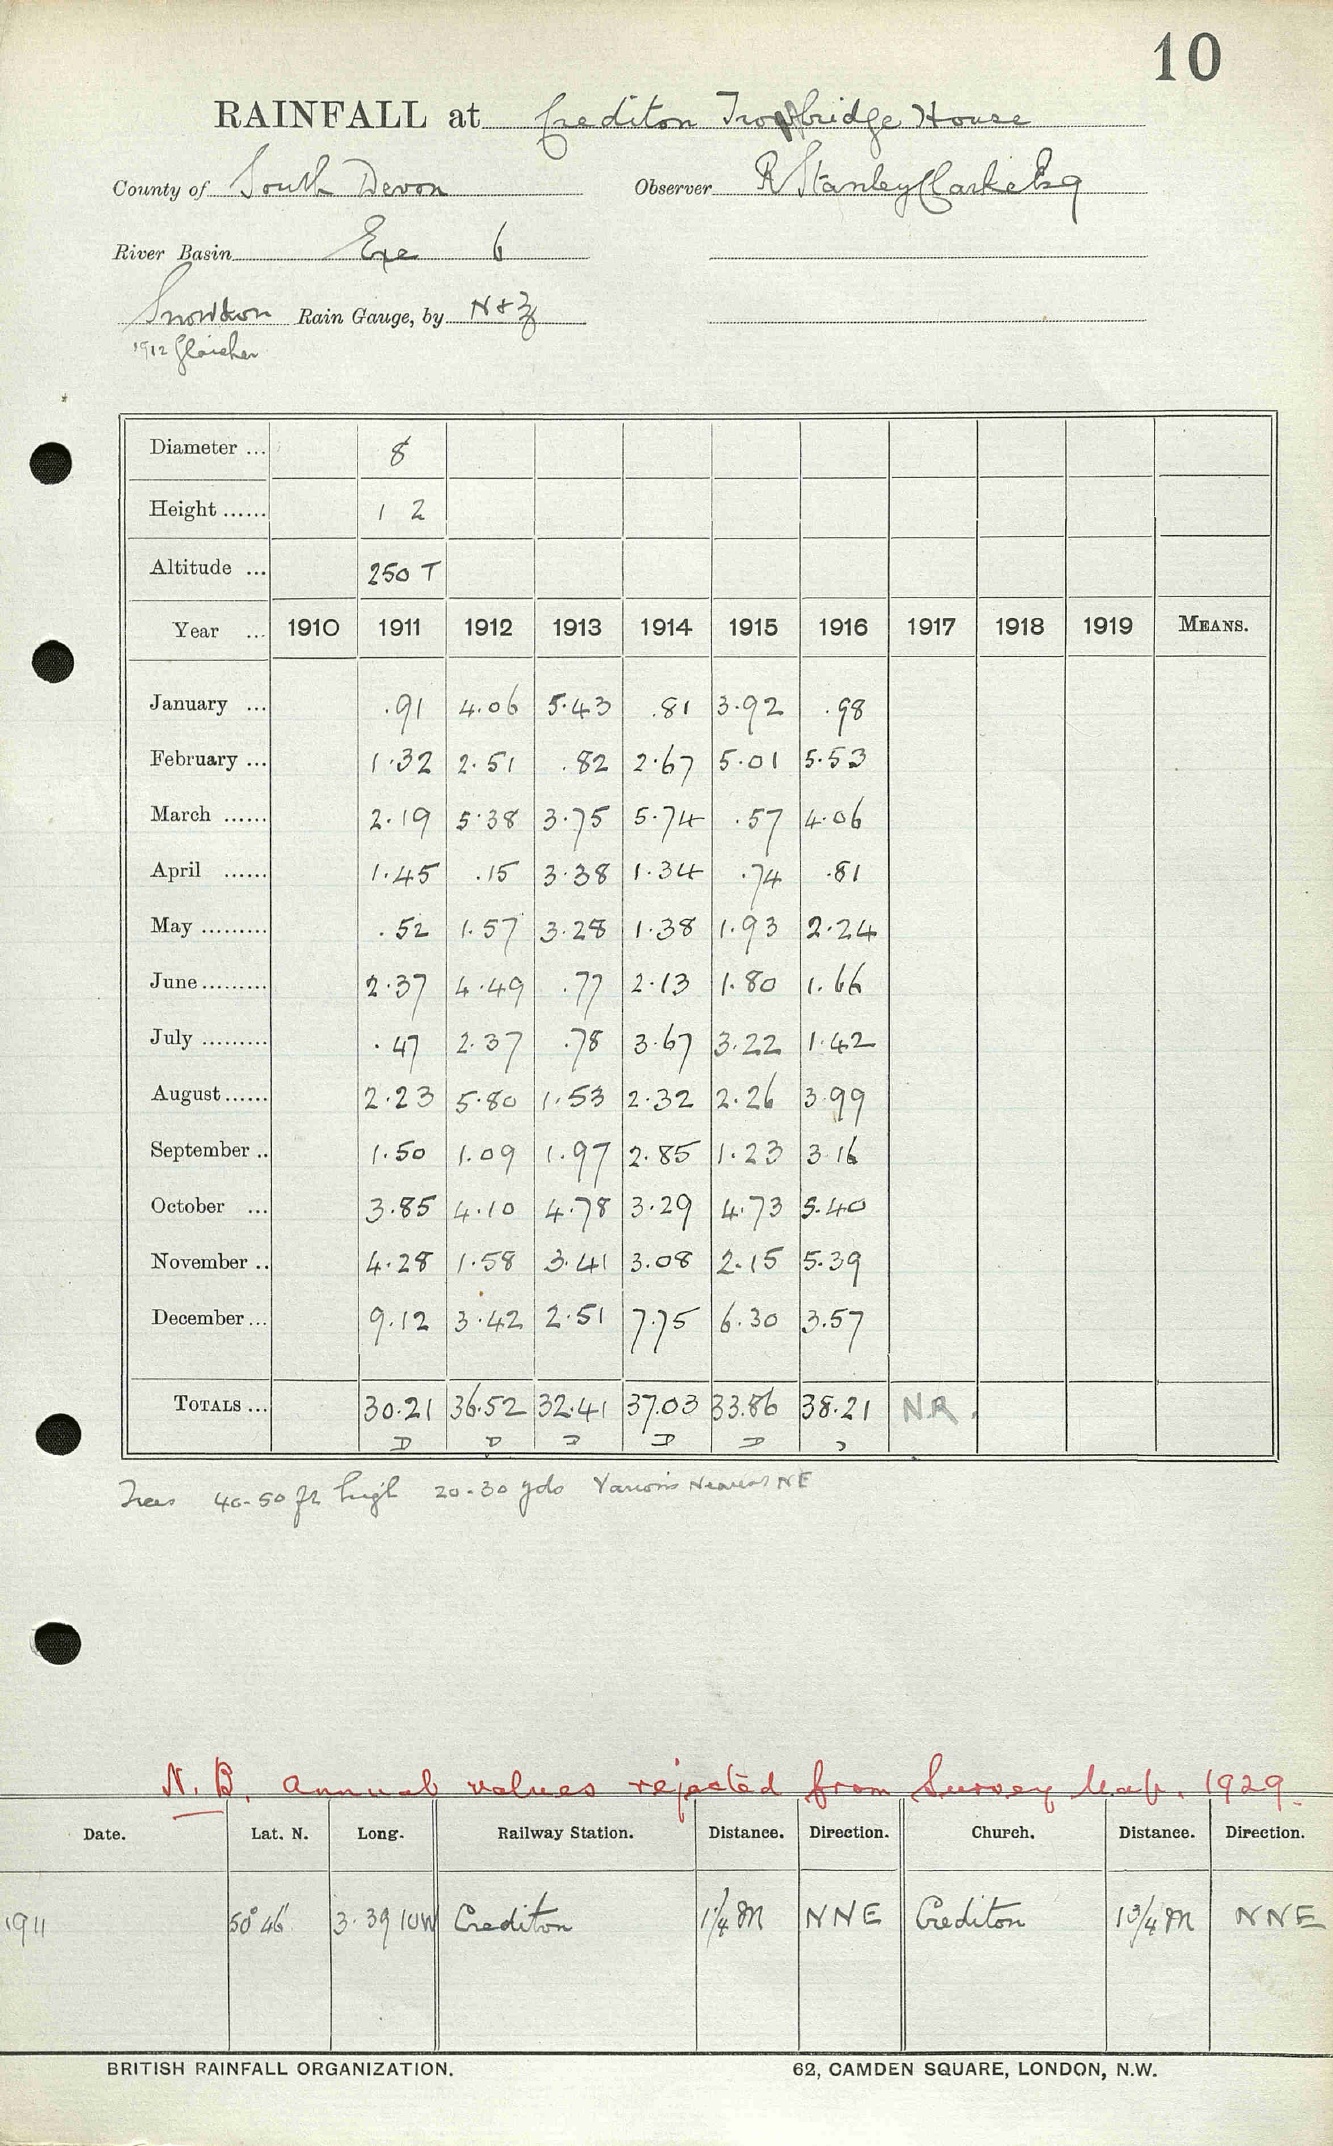 10
RAINFALL at Crediton Trowbridge House
County of South Devon Observer R Stanley Clarke Esq
River Basin Exe 6
Snowdon Rain Gauge, by N & Z
1912 Glaisher
Diameter ... 8
Height ...... 1 2
Altitude ... 250 T
Year ... 1910 1911 1912 1913 1914 1915 1916 1917 1918 1919 MEANS.
January ... .91 4.06 5.43 .81 3.92 .98
February ... 1.32 2.51 .82 2.67 5.01 5.53
March ...... 2.19 5.38 3.75 5.74 .57 4.06
April ...... 1.45 .15 3.38 1.34 .74 .81
May ......... .52 1.57 3.28 1.38 1.93 2.24
June ......... 2.37 4.49 .77 2.13 1.80 1.66
July ......... .47 2.37 .78 3.67 3.22 1.42
August ...... 2.23 5.80 1.53 2.32 2.26 3.99
September .. 1.50 1.09 1.97 2.85 1.23 3.16
October ... 3.85 4.10 4.78 3.29 4.73 5.40
November .. 4.28 1.58 3.41 3.08 2.15 5.39
December ... 9.12 3.42 2.51 7.75 6.30 3.57
TOTALS ... 30.21 36.52 32.41 37.03 33.86 38.21 N.R.
D D D D D D
Trees 40-50 ft high 20-30 yds Various Nearest NE
N.B. Annual values rejected from Survey Map. 1929.
Date. Lat. N. Long. Railway Station. Distance. Direction. Church. Distance. Direction.
1911 50° 46' 3.39 10W Crediton 1 1/4 m NNE Crediton 1 3/4 m NNE
BRITISH RAINFALL ORGANIZATION. 62, CAMDEN SQUARE, LONDON, N.W.